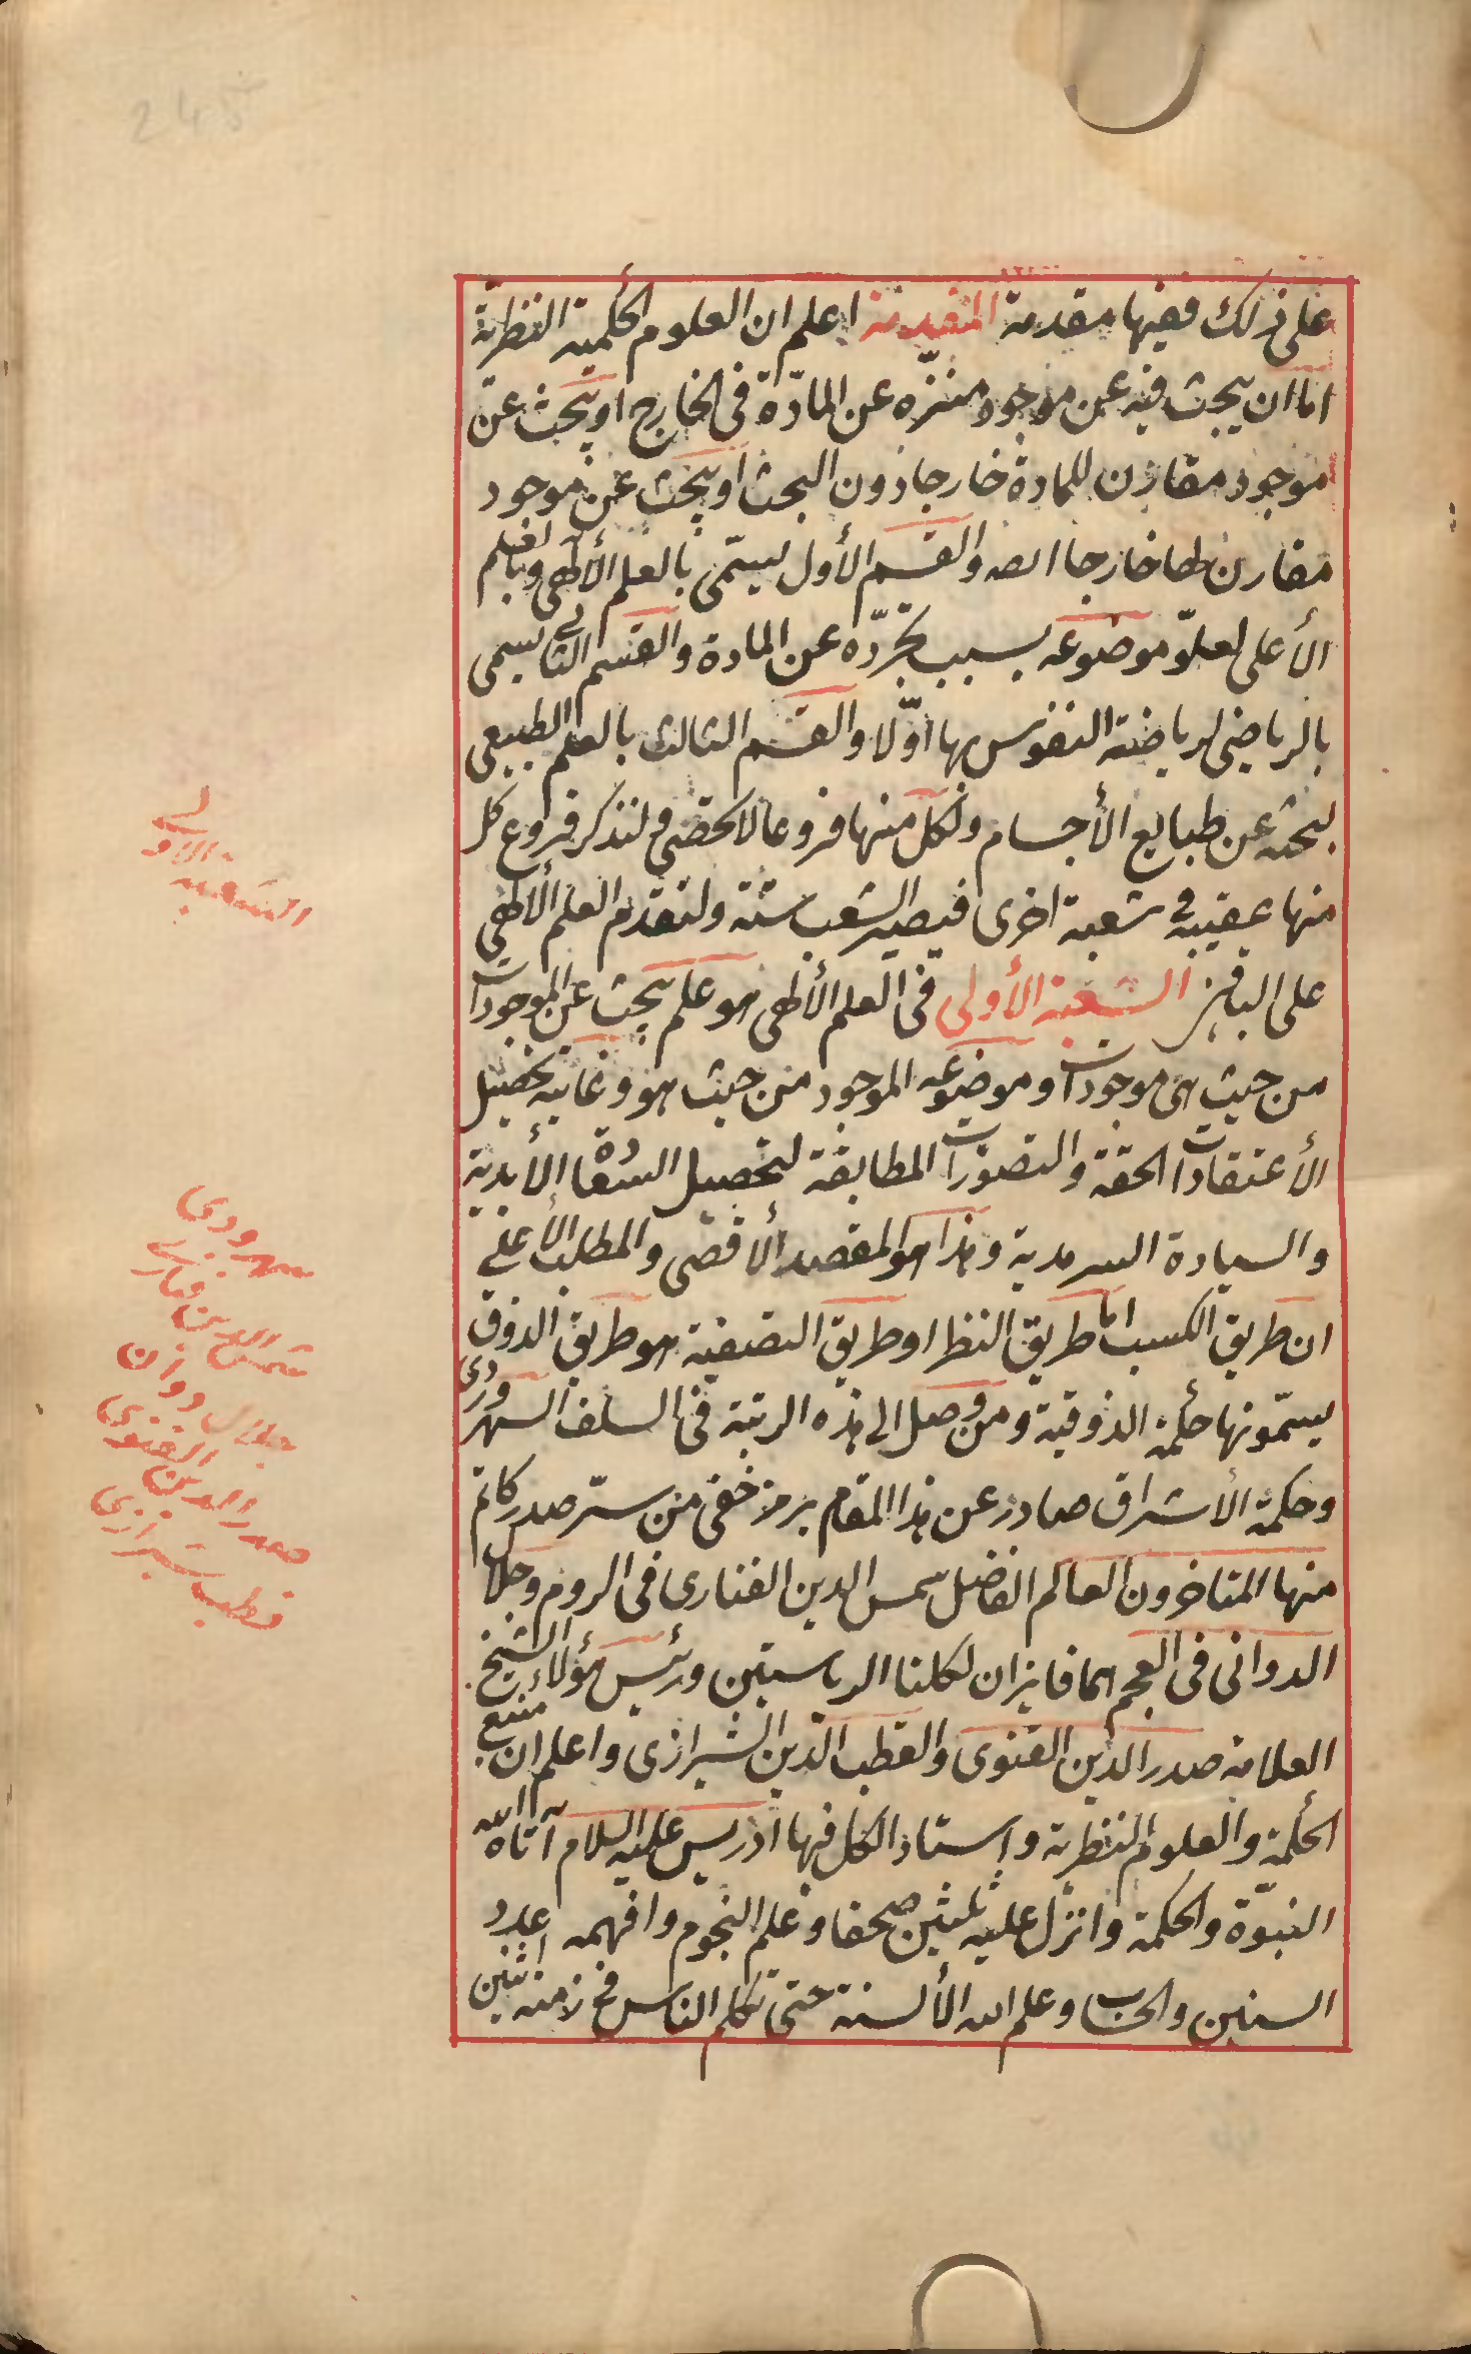 245
على ذلك ففيها مقدمة المقدمة اعلم ان العلوم الحكمية النظرية
اما ان يبحث فيه عن موجود منزّه عن المادّة فى الخارج او يبحث عن
موجود مقارن للمادة خارجا دون البحث او يبحث عن موجود
مقارن لها خارجا والقسم الأول يسمّى بالعلم الألهى وبالعلم
الأعلى لعلوّ موضوعه بسبب تجرّده عن المادة والقسم الثانى يسمى
بالرياضى لرياضة النفوس بها اوّلا والقسم الثالث بالعلم الطبيعى
لبحثه عن طبايع الأجسام ولكل منها فروعا لا تحصى لنذكر فروع كل
منها عقيبه فى شعبة اخرى فيصير الشعب ستة ولنقدم العلم الألهى
على الباقين الشعبة الأولى فى العلم الألهى هو علم يبحث عن الموجودات
من حيث هى موجودات وموضوعه الموجود من حيث هو وغايته تحصيل
الأعتقادات الحقة والتصورات المطابقة لتحصيل السعادة الأبدية
والسيادة السرمدية وهذا هو المقصد الأقصى والمطلب الأعلى
ان طريق الكسب اما طريق النظر او طريق التصفية هو طريق الذوق
يسمّونها حكمة الذوقية ومن وصل الى هذه الرتبة فى السلف السهروردى
وحكمة الأشراق صادر عن هذا المقام برمز خفى من سرّ صدر كاتم
منها المتاخرون العالم الفاضل شمس الدين الفنارى فى الروم وجلال
الدوانى فى العجم هما فايزان لكلتا الرياستين ورئيس هؤلاء الشيخ
العلامة صدر الدين القنوى والقطب الدين الشيرازى واعلم ان منبع
الحكمة والعلوم النظرية واستاذ الكل فيها ادريس عليه السلام آتاه الله
النبوّة والحكمة وانزل عليه ثلثين صحفا وعلم النجوم وافهمه عدد
السنين والحساب وعلم الله الألسنة حتى تكلم الناس فى زمنه اثنين
الشعبة الاولى
سهروردى
شمس الدين فنارى
جلال دوان
صدر الدين القنوى
قطب شيرازى